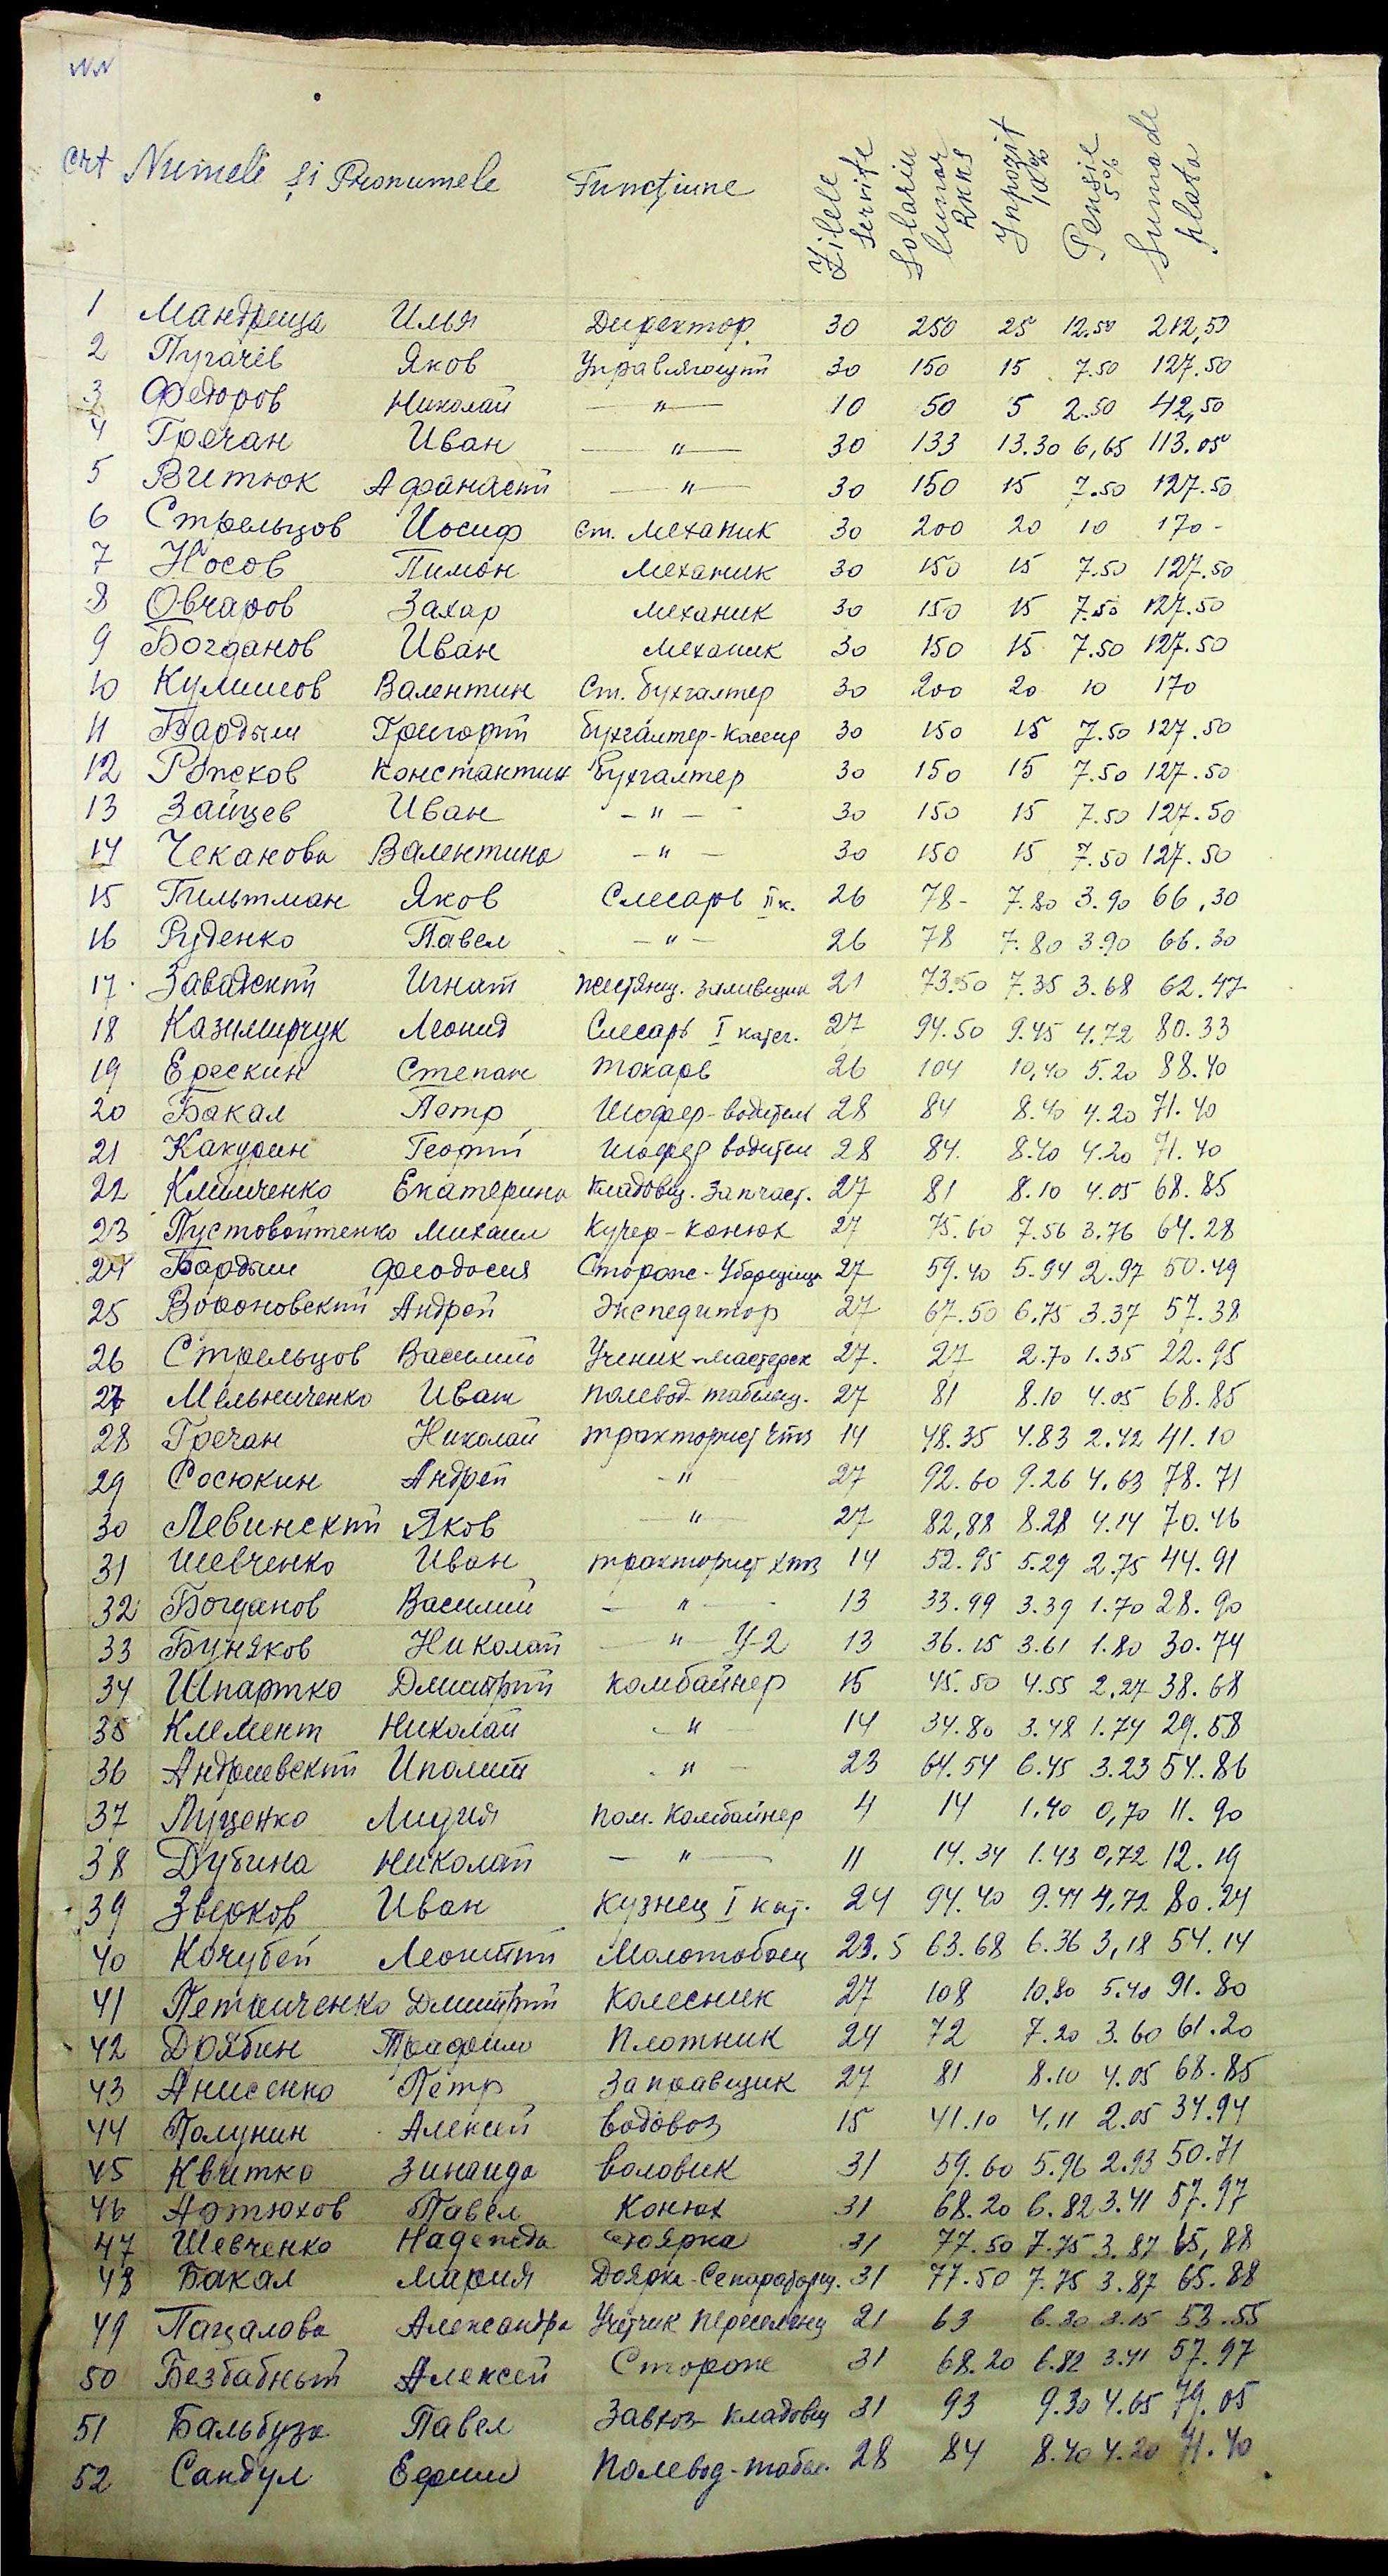 NN
crt Numele și Pronumele Funcțiune Zilele servite Solariu lunar RKKS Inpozit 10% Pensie 5% Suma de plata
1 Мандрица Илья Директор 30 250 25 12.50 212,50
2 Пугачёв Яков Управляющий 30 150 15 7.50 127.50
3 Федоров Николай — " — 10 50 5 2.50 42,50
4 Гречан Иван — " — 30 133 13.30 6,65 113.05
5 Витюк Афанасий — " — 30 150 15 7.50 127.50
6 Стрельцов Иосиф ст. Механик 30 200 20 10 170 -
7 Носов Пимон Механик 30 150 15 7.50 127.50
8 Овчаров Захар механик 30 150 15 7.50 127.50
9 Богданов Иван механик 30 150 15 7.50 127.50
10 Валентин Ст. бухгалтер 30 200 20 10 170
11 Бардым Григорий бухгалтер-Кассир 30 150 15 7.50 127.50
12 Константин Бухгалтер 30 150 15 7.50 127.50
13 Зайцев Иван - " - 30 150 15 7.50 127.50
14 Чеканова Валентина - " - 30 150 15 7.50 127.50
15 Гильтман Яков Слесарь II к. 26 78- 7.80 3.90 66,30
16 Руденко Павел - " - 26 78 7.80 3.90 66.30
17 Завадский Игнат жестянщ. заливщик 21 73.50 7.35 3.68 62.47
18 Казимирчук Леонид Слесарь I катег. 27 94.50 9.45 4.72 80.33
19 Ерескин Степан токарь 26 104 10,40 5.20 88.40
20 Бакал Петр Шофер-водитель 28 84 8.40 4.20 71.40
21 Какурин Георгий шофер водители 28 84. 8.40 4.20 71.40
22 Климченко Екатерина Кладовщ. запчаст. 27 81 8.10 4.05 68.85
23 Пустовойтенко Михаил Кучер-конюх 27 75.60 7.56 3.76 64.28
24 Бардым Феодосия Стороже-Уборщица 27 59.40 5.94 2.97 50.49
25 Вороновский Андрей Экспедитор 27 67.50 6.75 3.37 57.38
26 Стрельцов Василий Ученик-мастерск 27. 27 2.70 1.35 22.95
27 Мельниченко Иван полевод-табельщ. 27 81 8.10 4.05 68.85
28 Гречан Николай тракторист чтз 14 48.35 4.83 2.42 41.10
29 Сосюкин Андрей - " 27 92.60 9.26 4.63 78.71
30 Левинский Яков — " — 27 82,88 8.28 4.14 70.46
31 Шевченко Иван тракторист хтз 14 52.95 5.29 2.75 44.91
32 Богданов Василий — " — 13 33.99 3.39 1.70 28.90
33 Буняков Николай — " У-2 13 36.15 3.61 1.80 30.74
34 Шпартко Дмитрий комбайнер 15 45.50 4.55 2,27 38.68
35 Клемент Николай - " — 14 34.80 3.48 1.74 29.58
36 Андриевский Иполит - " — 23 64.54 6.45 3.23 54.86
37 Луценко Лидия пом. Комбайнер 4 14 1,40 0,70 11.90
38 Дубина Николай — " — 11 14.34 1.43 0,72 12.19
39 Зверков Иван Кузнец I кат. 24 94.40 9.44 4,72 80.24
40 Кочубей Леонтий Молотобоец 23.5 63.68 6.36 3,18 54.14
41 Петриченко Дмитрий Колесник 27 108 10.80 5.40 91.80
42 Дрябин Трафим Плотник 24 72 7.20 3.60 61.20
43 Анисенко Петр Заправщик 27 81 8.10 4.05 68.85
44 Полунин Алексей водовоз 15 41.10 4,11 2.05 34.94
45 Квитко Зинаида воловик 31 59.60 5.96 2.93 50.71
46 Артюхов Павел Конюх 31 68.20 6.82 3.41 57.97
47 Шевченко Надежда доярка 31 77.50 7.75 3.87 65,88
48 Бакал Мария Доярка-Сепараторщ. 31 77.50 7.75 3.87 65.88
49 Пацалова Александра Учетчик переселенц 21 63 6.30 3.15 53.55
50 Безбабный Алексей Стороже 31 68.20 6.82 3.41 57.97
51 Бальбуза Павел Завхоз-кладовщ 31 93 9.30 4.65 79.05
52 Сандул Ефим Полевод-табел. 28 84 8.40 4.20 71.40